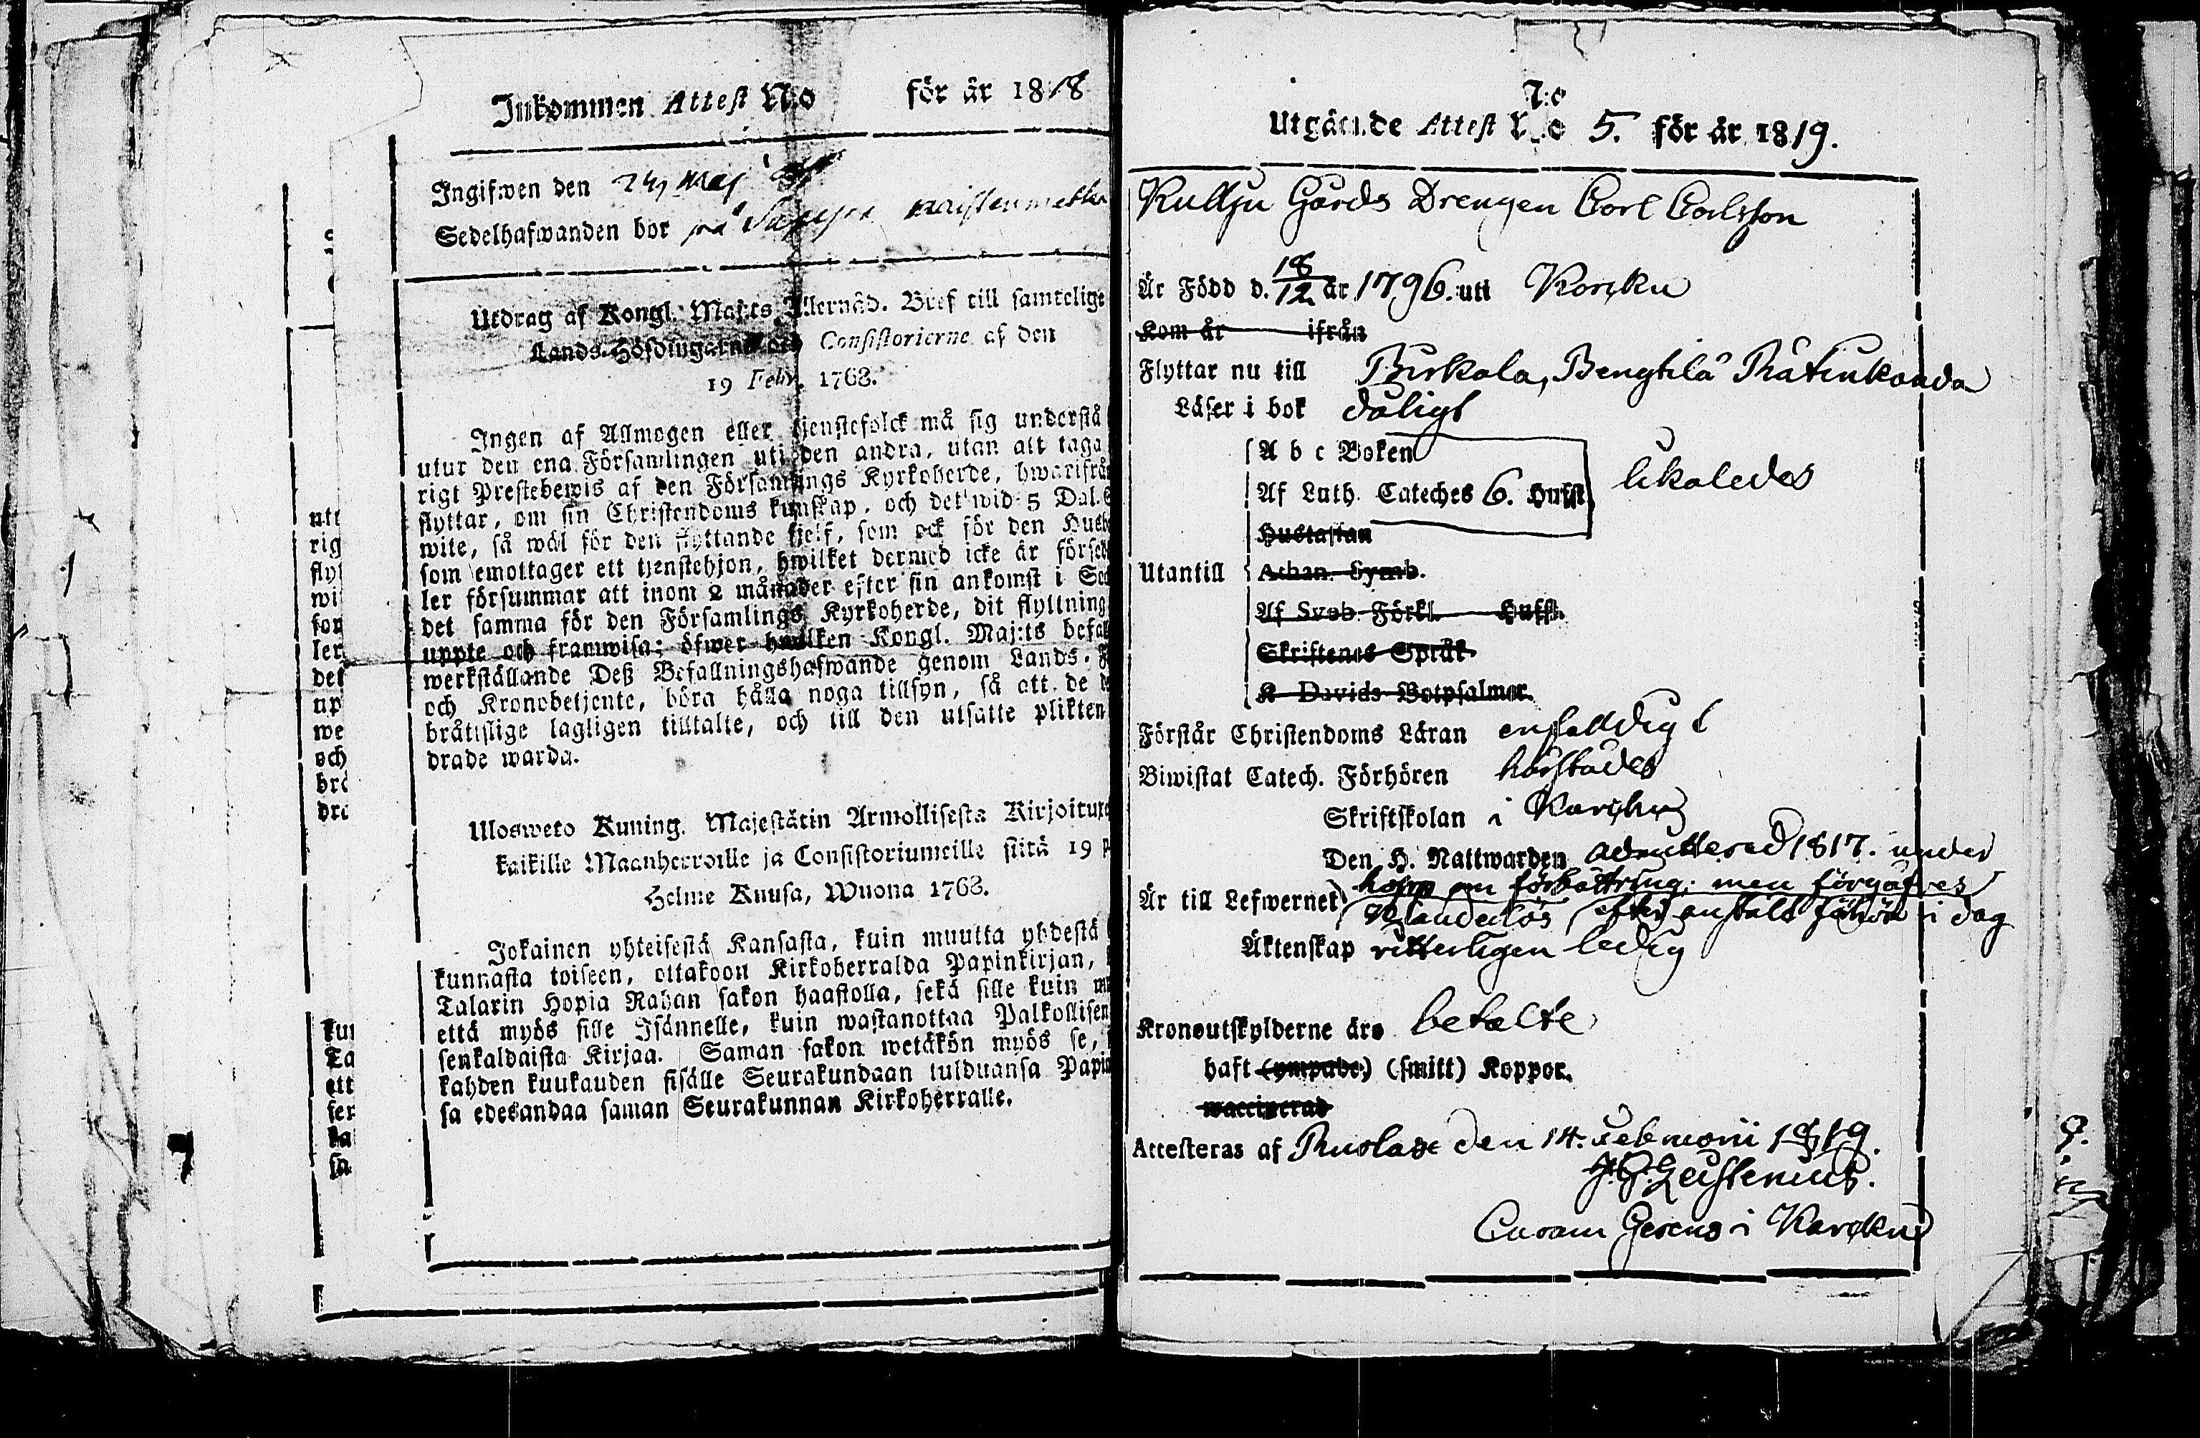 Inkommen Attest N:o för år 1818
Ingifwen den 24 Maj
Sedelhafwanden bor på
Utdrag af Kongl. Maj:ts Allernåd. Bref till samtelige
Lands-Höfdingarne och Consistorierne af den
19 Febr. 1763.
Ingen af Allmogen eller tjenstefolck må sig understå
utur den ena Församlingen uti den andra, utan att taga
rigt Prestebewis af den Församlings Kyrkoherde, hwarifrå
flyttar, om sin Christendoms kunskap, och det wid 5 Dal. S
wite, så wäl för den flyttande sjelf, som ock för den Husb
som emottager ett tjenstehjon, hwilket dermed icke är försedt
ler försummar att inom 2 månader efter sin ankomst i Soc
det samma för den Församlings Kyrkoherde, dit flyttning
uppte och framwisa; öfwer hwilken Kongl. Maj:ts befal
werkställande Deß Befallningshafwande genom Lands-F
och Kronobetjente, böra hålla noga tillsyn, så att de
bråttslige lagligen tilltalte, och till den utsatte plikten
drade warda.
Ulosweto Kuning. Majestätin Armollisesta Kirjoituxe
kaikille Maanherroille ja Consistoriumeille siitä 19 p
Helme Kuusa, Wuona 1763.
Jokainen yhteisestä Kansasta, kuin muutta yhdestä
kunnasta toiseen, ottakoon Kirkoherralda Papinkirjan,
Talarin Hopia Rahan sakon haastolla, sekä sille kuin mu
että myös sille Isännelle, kuin wastanottaa Palkollisen
senkaldaista Kirjaa. Saman sakon wetäkön myös se,
kahden kuukauden sisälle Seurakundaan tulduansa Papin
sa edesandaa saman Seurakunnan Kirkoherralle.
utt
rig
flyt
wi
som
ler
det
up
we
och
brå
dra
kun
Ta
ett
sen
ka
sa
N:o
Utgående Attest N:o 5. för år 1819.
Kullju Gårds Drengen Carl Carlsson
År Född d. 18/12 år 1796. uti Karcku
Kom år ifrån
Flyttar nu till Birkala, Bengtilä Rätinkoada
Läser i bok dåligt
A b c Boken
Af Luth. Cateches 6. Hufst. likaledes
Hustaflan
Utantill Athan. Symb.
Af Sveb. Förkl. Hufst.
Skriftenes Språk
K Davids Botpsalmer.
Förstår Christendoms Läran enfalldigt
Biwistat Catech. Förhören härstädes
Skriftskolan i Karcku
Den H. Nattwarden admitterad 1817. under
hopp om förbättring; men förgäfves
Är till Lefwernet klanderlös efter anstält förhör i dag
Äktenskap vitterligen ledig
Kronoutskylderne äro betalte
haft (ympade) (smitt) Koppor.
waccinerad
Attesteras af Ruolax den 14. Februarii 1819.
J. G. Zeistenius.
Curam Gerens i Karcku
9.